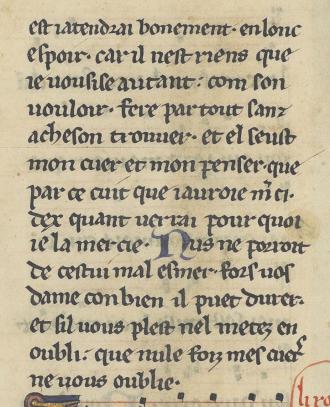 est iatendrai bonement· en lonc
espoir· car il nest riens que
ie uousisse autant: com son
uouloir· fere par tout sanz
acheson trouuer· et el seust
mon cuer et mon penser· que
par ce cuit que iauroie m̅ci·
dex quant uerrai pour quoi
ie la mercie· Nus ne porroit
de cestui mal esmer· fors uos
dame con bien il puet durer·
et sil uous plest nel metez en
oubli: que nule foiz mes cuers
ne uous oublie·